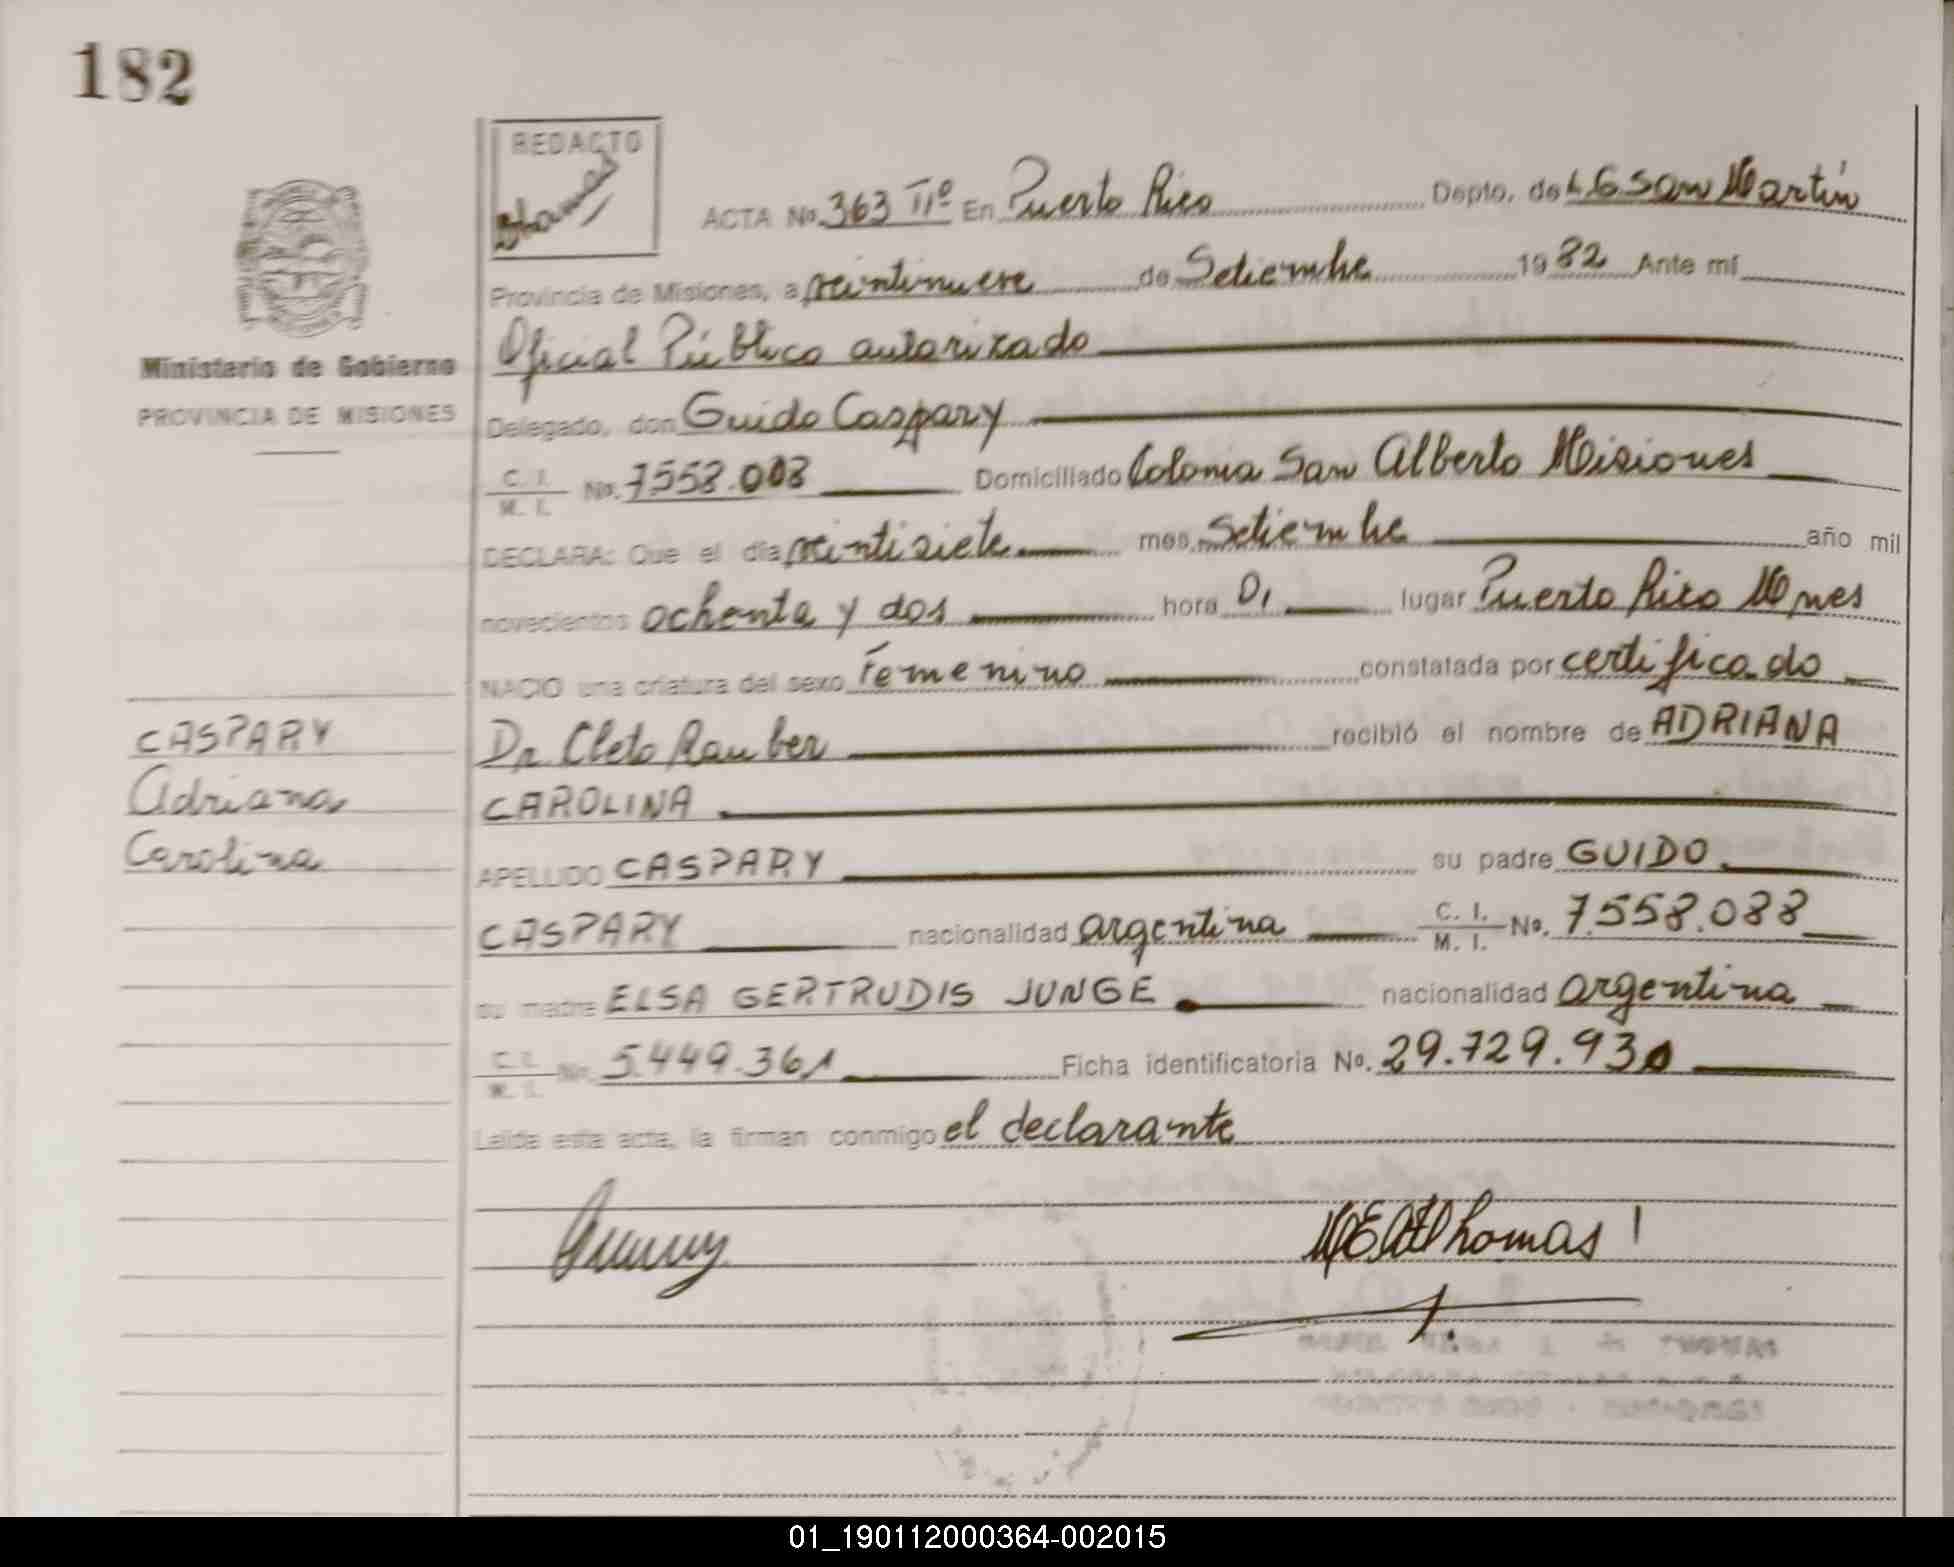 182
REDACTO
ACTA No. 363 Tº IIº En Puerto Rico Depto. de L G San Martín
Provincia de Misiones, a veintinueve de Setiembre 1982 Ante mí
Oficial Público autorizado
Ministerio de Gobierno
PROVINCIA DE MISIONES
Delegado, don Guido Caspary
C. I. M. I. No. 7558.088 Domiciliado Colonia San Alberto Misiones
DECLARA: Que el día veintisiete mes Setiembre año mil
novecientos ochenta y dos hora 01 lugar Puerto Rico Mnes
NACIO una criatura del sexo Femenino constatada por certificado
CASPARY
Adriana
Carolina
Dr. Cleto Rauber recibió el nombre de ADRIANA
CAROLINA
APELLIDO CASPARY su padre GUIDO
CASPARY nacionalidad argentina C. I. M. I. No. 7.558.088
su madre ELSA GERTRUDIS JUNGE nacionalidad argentina
C. I. M. I. No. 5.449.361 Ficha identificatoria No. 29.729.930
Leída esta acta, la firman conmigo el declarante
Thomas
THOMAS
01_190112000364-002015